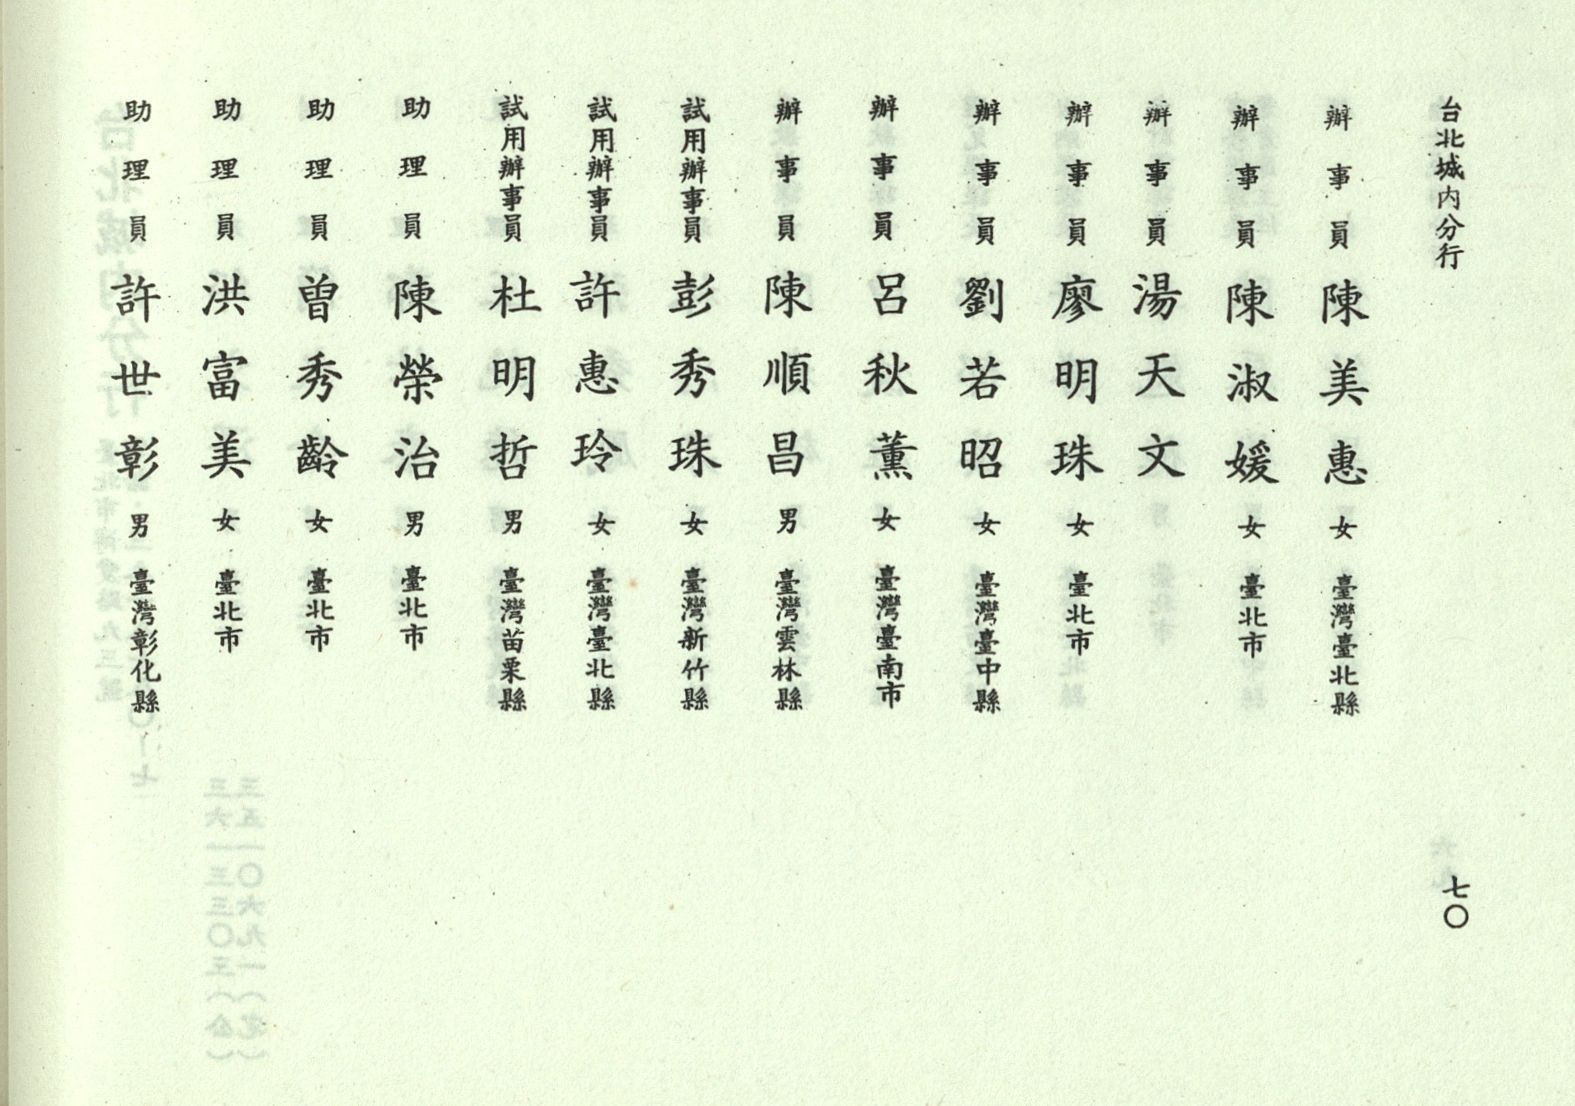 台北城內分行
辦事員 陳美惠 女 臺灣臺北縣
辦事員 陳淑媛 女 臺北市
辦事員 湯天文
辦事員 廖明珠 女 臺北市
辦事員 劉若昭 女 臺灣臺中縣
辦事員 呂秋薰 女 臺灣臺南市
辦事員 陳順昌 男 臺灣雲林縣
試用辦事員 彭秀珠 女 臺灣新竹縣
試用辦事員 許惠玲 女 臺灣臺北縣
試用辦事員 杜明哲 男 臺灣苗栗縣
助理員 陳榮治 男 臺北市
助理員 曾秀齡 女 臺北市
助理員 洪富美 女 臺北市
助理員 許世彰 男 臺灣彰化縣
七〇